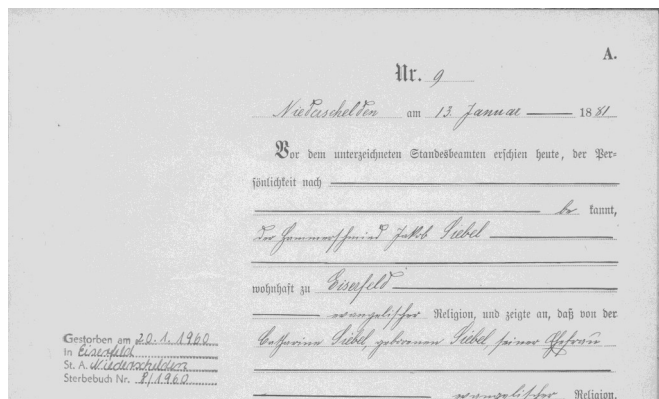 A.
Nr. 9
Niederschelden am 13. Januar 1881
Vor dem unterzeichneten Standesbeamten erschien heute, der Per-
sönlichkeit nach
be kannt,
der Hammerschmied Jakob Siebel
wohnhaft zu Eiserfeld
evangelischer Religion, und zeigte an, daß von der
Catharine Siebel, geborenen Siebel, seiner Ehefrau
evangelischer Religion,
Gestorben am 20.1.1960
In Eiserfeld
St. A. Niederschelden
Sterbebuch Nr. 8/1960